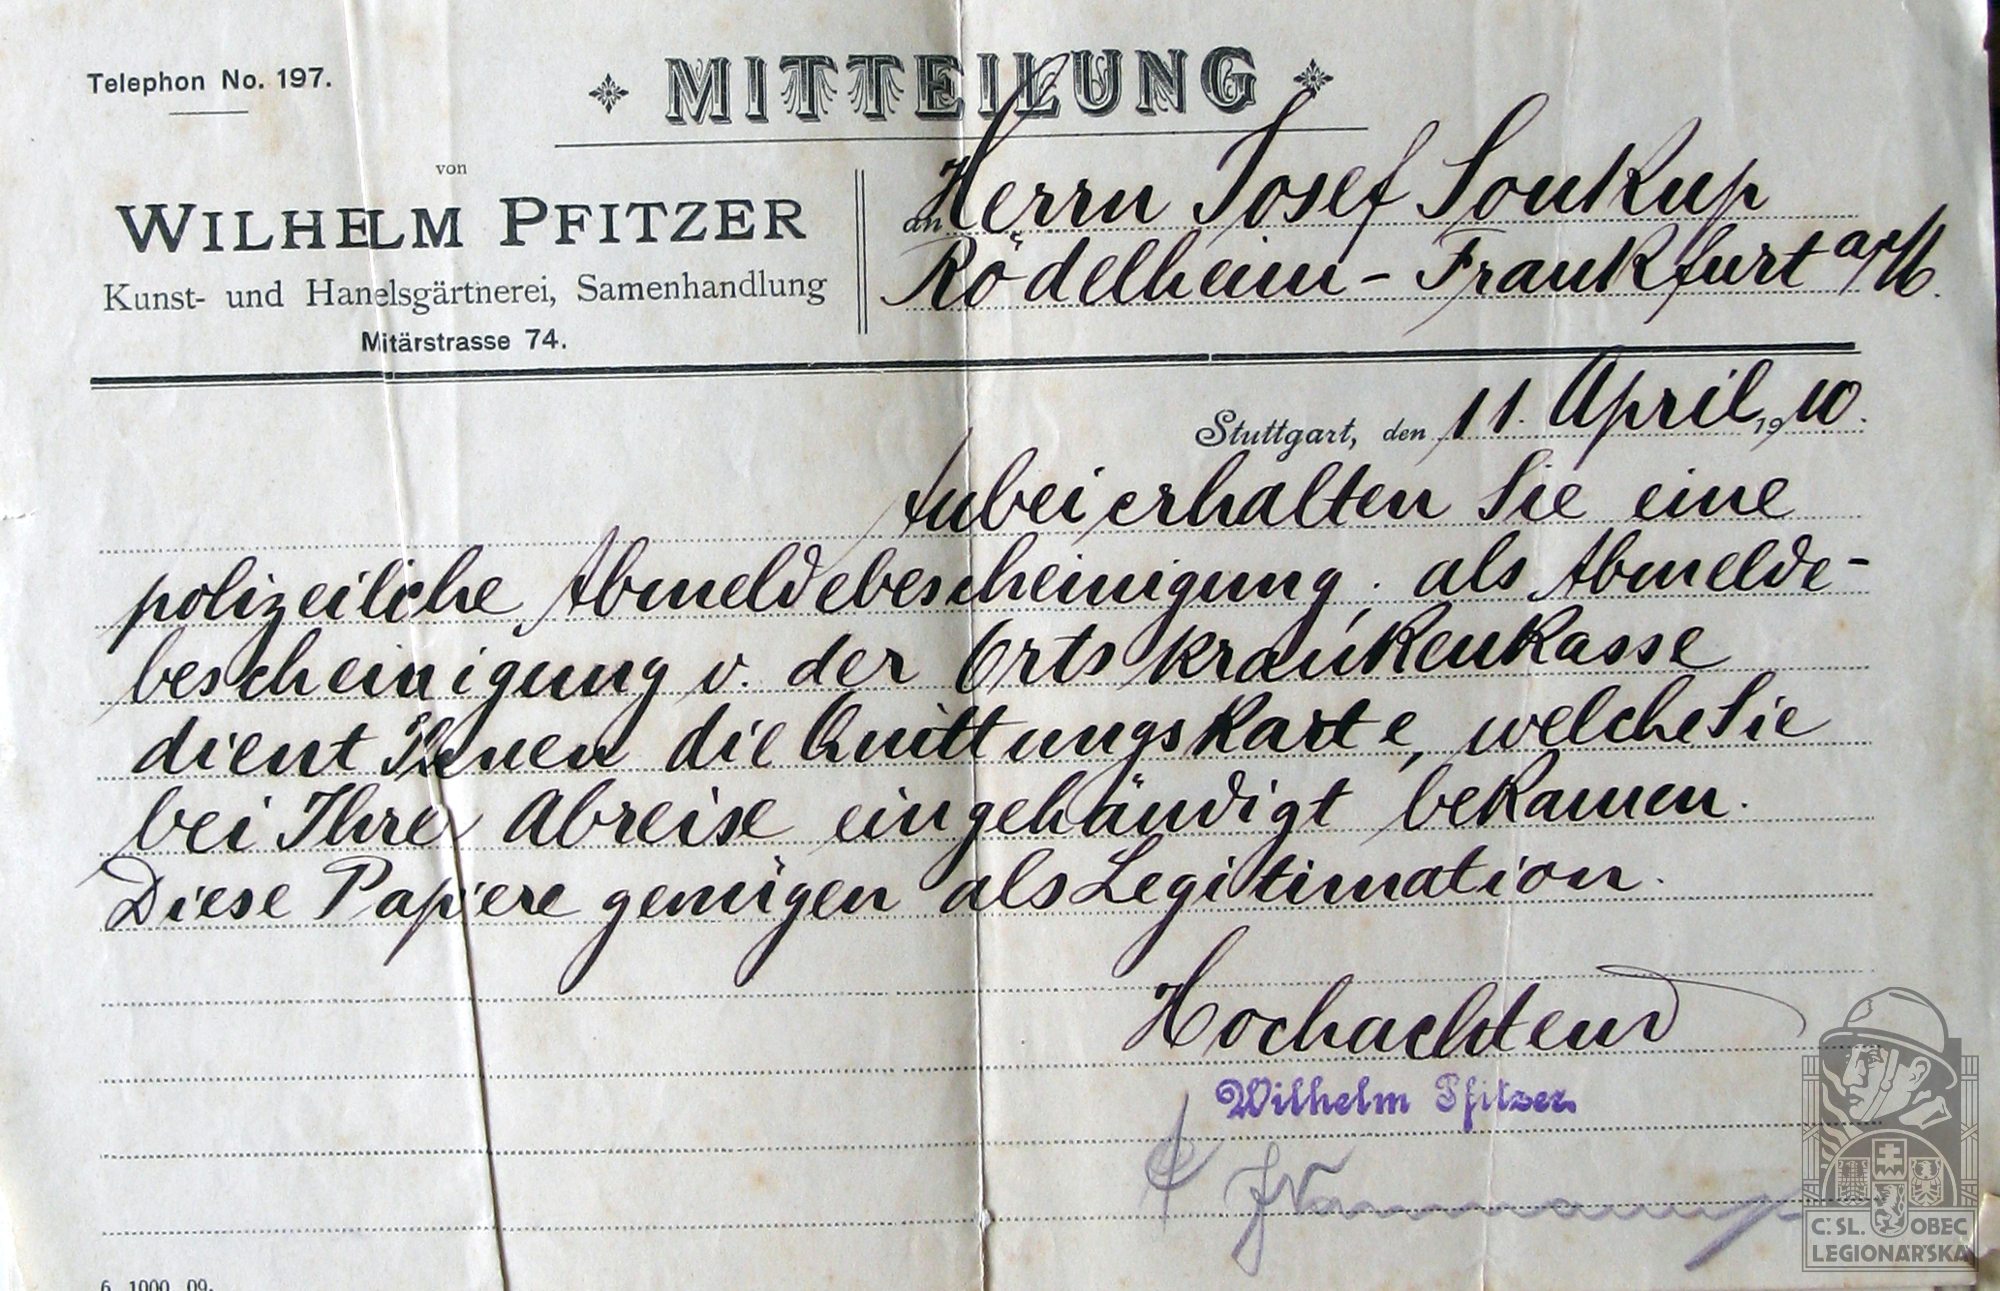 Telephon No. 197.
MITTEILUNG
von
WILHELM PFITZER
Kunst- und Hanelsgärtnerei, Samenhandlung
Mitärstrasse 74.
an Herrn Josef Soukup
Rödelheim - Frankfurt a/M.
Stuttgart, den 11. April 1910.
Anbei erhalten Sie eine
polizeiliche Abmeldebescheinigung. als Abmelde-
bescheinigung v. der Ortskrankenkasse
dient Ihnen die Quittungskarte, welche Sie
bei Ihrer Abreise eingehändigt bekamen.
Diese Papiere genügen als Legitimation.
Hochachtend
Wilhelm Pfitzer
6. 1000. 09.
Č. SL. OBEC
LEGIONÁŘSKÁ